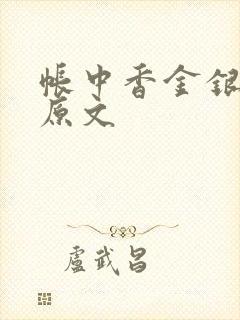 帳中香金銀
原文
盧武昌